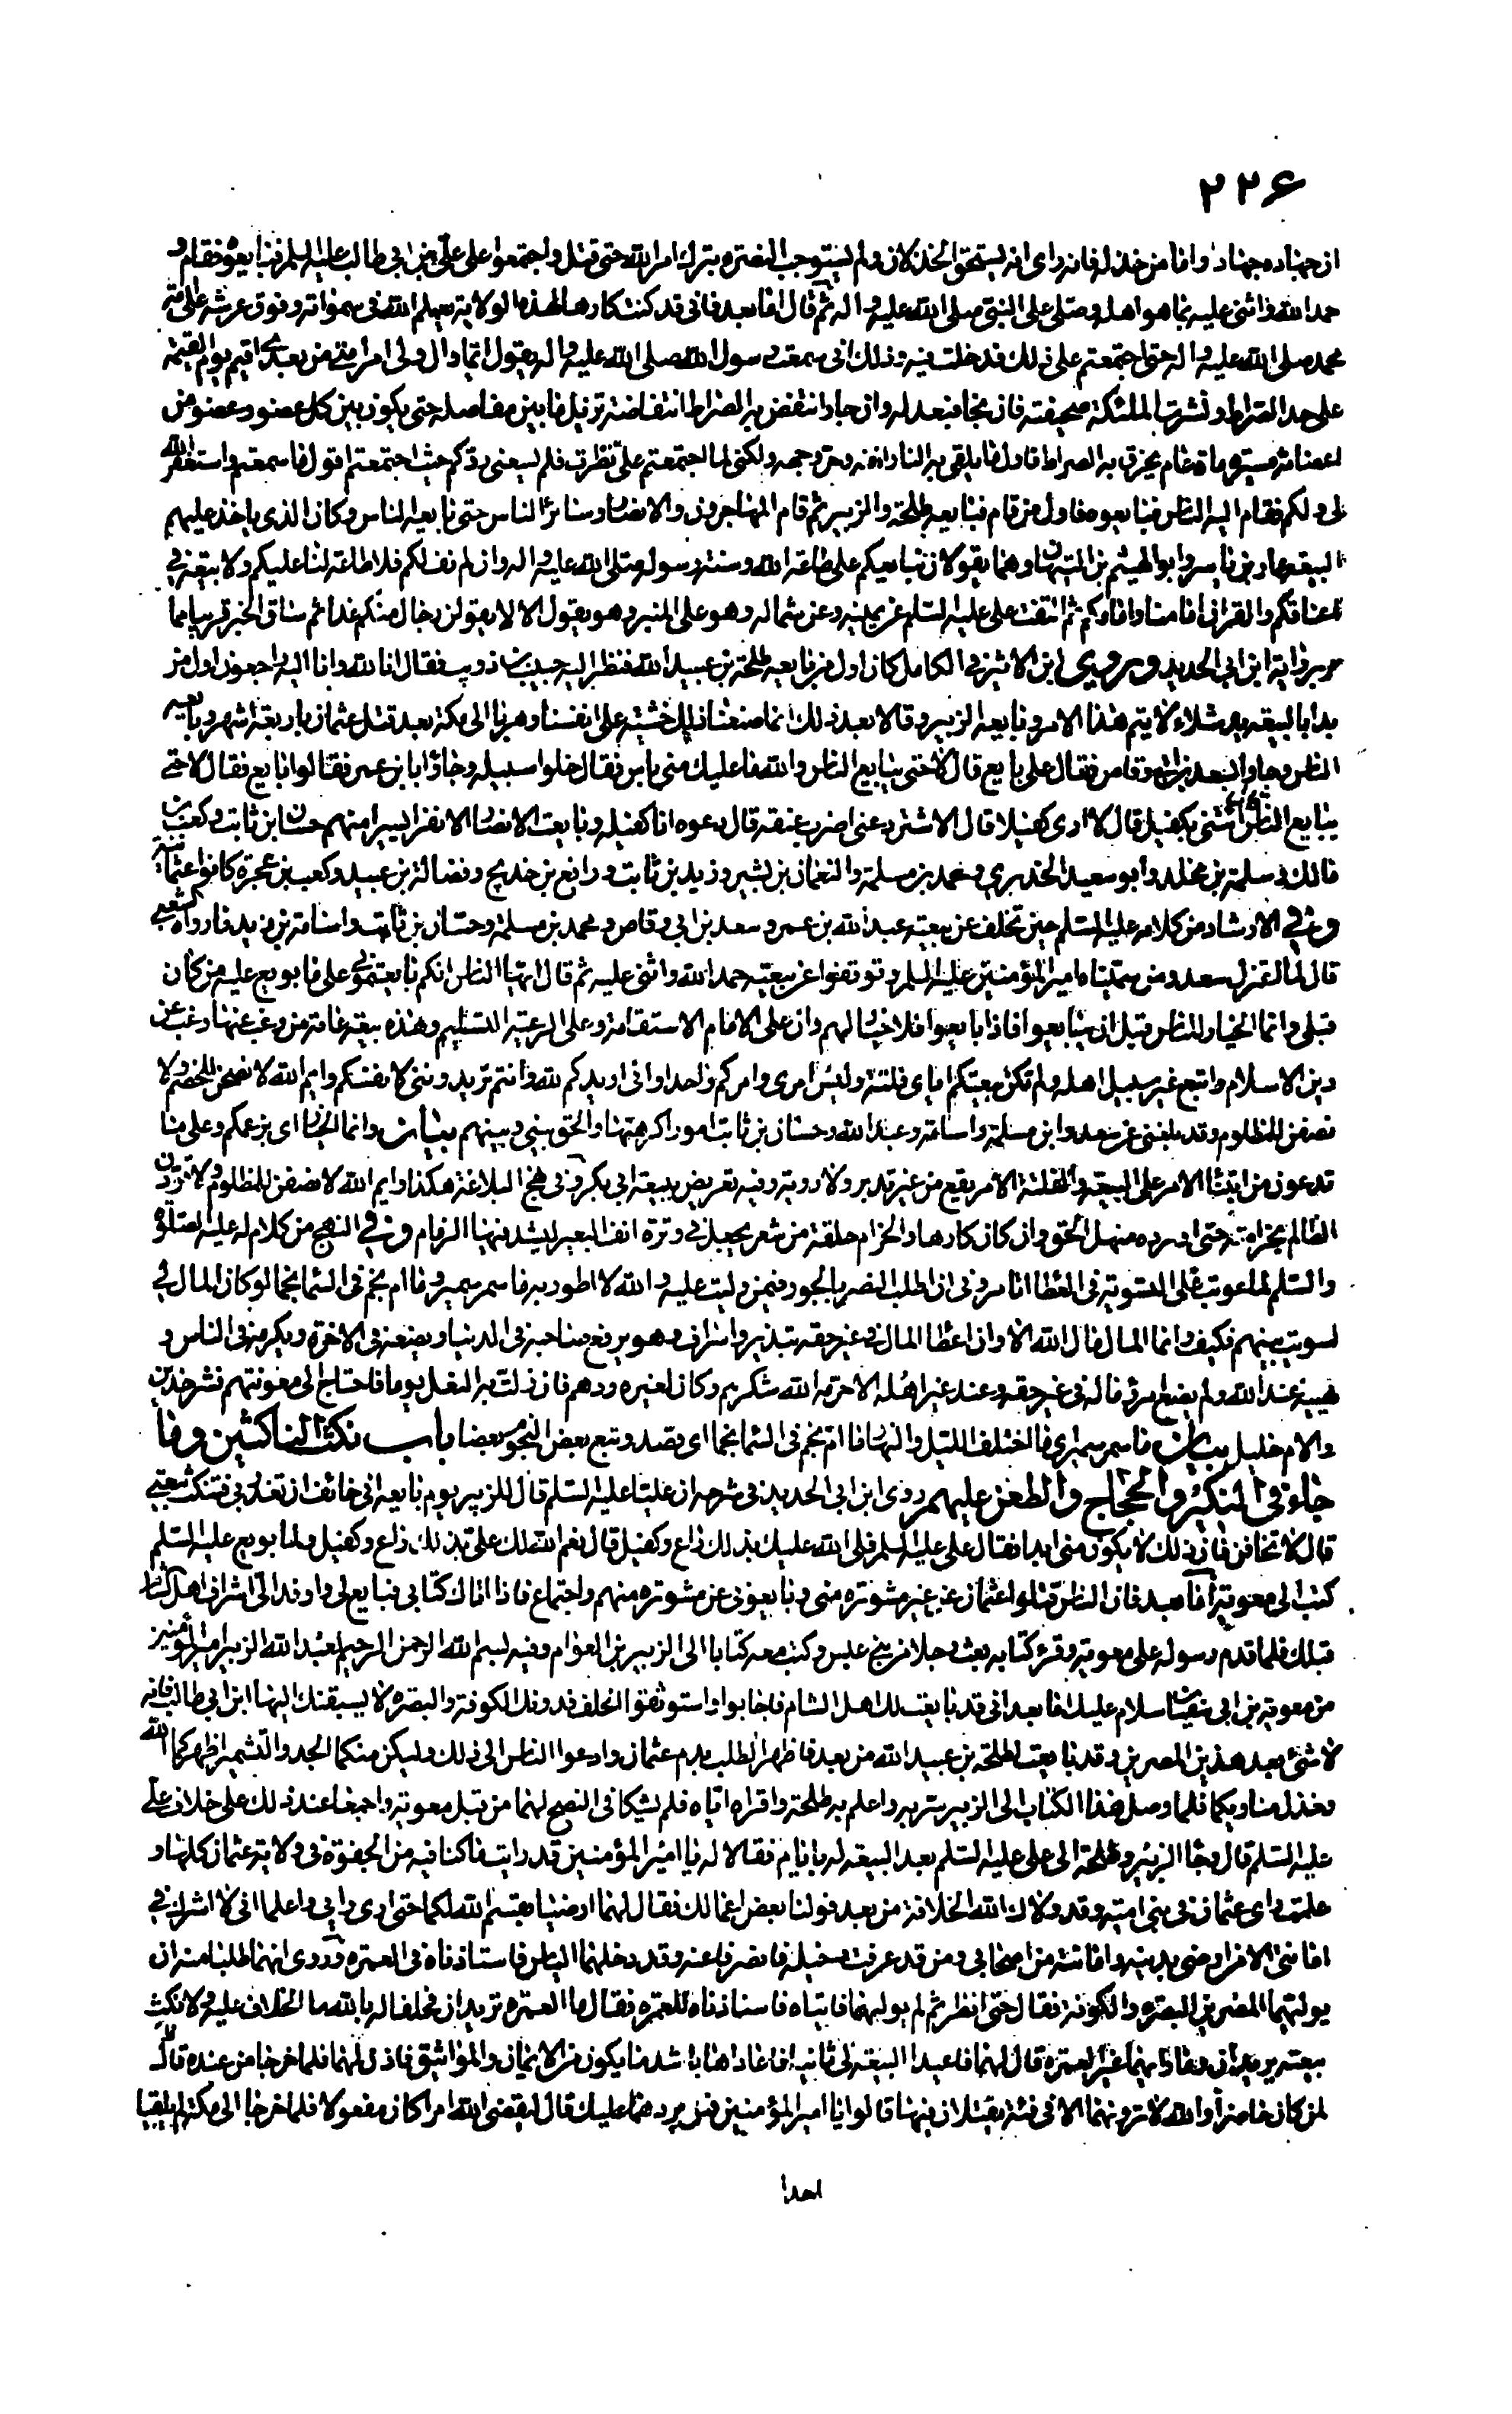 ٢٢۶
ان جهاده جهاد واما من خذله فانه راى انه يستحق الخذلان ولم يستوجب النصرة بترك امر الله حتى قتل واجتمعوا على علي بن ابي طالب عليه السلم فبايعوه فقام و
حمد الله واثنى عليه بما هو اهله وصلى على النبي صلى الله عليه واله ثم قال اما بعد فاني قد كنت كارها لهذه الولاية يعلم الله في سمواته وفوق عرشه على امة
محمد صلى الله عليه واله حتى اجتمعتم على ذلك فدخلت فيه وذلك اني سمعت رسول الله صلى الله عليه واله يقول ايما وال ولى امر امتي من بعدي اقيم يوم القيمة
على حد الصراط ونشرت الملئكة صحيفته فان نجا فبعدله وان جار انتقض به الصراط انتقاضة تزيل ما بين مفاصله حتى يكون بين كل عضو وعضو من
اعضائه مسيرة مائة عام يخرق به الصراط فاول ما يلقى به النار انفه وحر وجهه ولكني لما اجتمعتم علي نظرت فلم يسعني ردكم حيث اجتمعتم اقول ما سمعتم واستغفر الله
لي ولكم فقام اليه الناس فبايعوه فاول من قام فبايعه طلحة والزبير ثم قام المهاجرون والانصار وسائر الناس حتى بايعه الناس وكان الذي ياخذ عليهم
البيعة عمار بن ياسر وابو الهيثم بن التيهان وهما يقولان نبايعكم على طاعة الله وسنة رسوله صلى الله عليه واله وان لم نف لكم فلا طاعة لنا عليكم ولا بيعة في
اعناقكم والقران امامنا وامامكم ثم التفت علي عليه السلم عن يمينه وعن شماله وهو على المنبر وهو يقول الا لا يقولن رجال منكم غدا ثم ساق الخبر قريبا مما
مر برواية ابن ابي الحديد وروى ابن الاثير في الكامل كان اول من بايعه طلحة بن عبيد الله فنظر اليه حبيب بن ذويب فقال انا لله وانا اليه راجعون اول من
بدا بالبيعة يد شلاء لا يتم هذا الامر وبايعه الزبير وقالا بعد ذلك انما صنعنا ذلك خشية على انفسنا وهربا الى مكة بعد قتل عثمان باربعة اشهر وبايعه
الناس وجاؤا بسعد بن ابي وقاص فقال علي بايع قال لا حتى يبايع الناس والله ما عليك مني باس فقال خلوا سبيله وجاؤا بابن عمر فقالوا بايع فقال لا حتى
يبايع الناس قال ائتني بكفيل قال لا ارى كفيلا قال الاشتر دعني اضرب عنقه قال دعوه انا كفيله وبايعت الانصار الا نفرا يسيرا منهم حسان بن ثابت وكعب بن
مالك ومسلمة بن مخلد وابو سعيد الخدري ومحمد بن مسلمة والنعمان بن بشير وزيد بن ثابت ورافع بن خديج وفضالة بن عبيد وكعب بن عجرة كانوا عثمانية
ومن في الارشاد من كلامه عليه السلم حين تخلف عن بيعته عبد الله بن عمر وسعد بن ابي وقاص ومحمد بن مسلمة وحسان بن ثابت واسامة بن زيد ما رواه الشعبي
قال لما اعتزل سعد ومن سميناه امير المؤمنين عليه السلم وتوقفوا عن بيعته حمد الله واثنى عليه ثم قال ايها الناس انكم بايعتموني على ما بويع عليه من كان
قبلي وانما الخيار للناس قبل ان يبايعوا فاذا بايعوا فلا خيار لهم وان على الامام الاستقامة وعلى الرعية التسليم وهذه بيعة عامة من رغب عنها رغب عن
دين الاسلام واتبع غير سبيل اهله ولم تكن بيعتكم اياي فلتة وليس امري وامركم واحدا واني اريدكم لله وانتم تريدونني لانفسكم وايم الله لانصحن للخصم ولا
نصفن للمظلوم وقد بلغني عن سعد وابن مسلمة واسامة وعبد الله وحسان بن ثابت امور كرهتها والحق بيني وبينهم بيان وانما الخيار اي بزعمكم وعلى ما
تدعون من ابتناء الامر على البيعة والفلتة الامر يقع من غير تدبر ولا روية وفيه تعريض ببيعة ابي بكر وفي نهج البلاغة هكذا وايم الله لانصفن للمظلوم ولاقودن
الظالم بخزامته حتى اورده منهل الحق وان كان كارها والخزام حلقة من شعر يجعل في وترة انف البعير ليشد فيها الزمام ومن في النهج من كلام له عليه الصلوة
والسلم لما عوتب على التسوية في العطا اتامروني ان اطلب النصر بالجور فيمن وليت عليه والله لا اطور به ما سمر سمير وما ام نجم في السما نجما لو كان المال لي
لسويت بينهم فكيف وانما المال مال الله الا وان اعطا المال في غير حقه تبذير واسراف وهو يرفع صاحبه في الدنيا ويضعه في الاخرة ويكرمه في الناس و
يهينه عند الله ولم يضع امرؤ ماله في غير حقه وعند غير اهله الا حرمه الله شكرهم وكان لغيره ودهم فان زلت به النعل يوما فاحتاج الى معونتهم فشر خدين
والام خليل بيان ما سمر سمير اي ما اختلف الليل والنهار ما ام نجم في السما نجما اي قصد وتبع بعض النجوم بعضا باب نكث الناكثين وما
جاء في النكير والحجاج والطعن عليهم روى ابن ابي الحديد في شرحه ان عليا عليه السلم قال للزبير يوم بايعه اني خائف ان تغدر بي فتنكث بيعتي
قال لا تخافن فان ذلك لا يكون مني ابدا فقال علي عليه السلم فلي الله عليك بذلك راع وكفيل قال نعم الله لك علي بذلك راع وكفيل ولما بويع عليه السلم
كتب الى معوية اما بعد فان الناس قتلوا عثمان عن غير مشورة مني وبايعوني عن مشورة منهم واجتماع فاذا اتاك كتابي فبايع لي واوفد الي اشراف اهل الشام
قبلك فلما قدم رسوله على معوية وقرء كتابه بعث رجلا من بني عبس وكتب معه كتابا الى الزبير بن العوام وفيه بسم الله الرحمن الرحيم لعبد الله الزبير امير المؤمنين
من معوية بن ابي سفيان سلام عليك اما بعد اني قد بايعت لك اهل الشام فاجابوا واستوثقوا الحلف فدونك الكوفة والبصرة لا يسبقنك اليها ابن ابي طالب فانه
لا شئ بعد هذين المصرين وقد بايعت لطلحة بن عبيد الله من بعدك فاظهرا الطلب بدم عثمان وادعوا الناس الى ذلك وليكن منكما الجد والتشمير اظهركما الله
وخذل مناويكما فلما وصل هذا الكتاب الى الزبير سر به واعلم به طلحة واقراه اياه فلم يشكا في النصح لهما من قبل معوية واجمعا عند ذلك على خلاف علي
عليه السلم قال وجا الزبير وطلحة الى علي عليه السلم بعد البيعة له بايام فقالا له يا امير المؤمنين قد رايت ما كنا فيه من الجفوة في ولاية عثمان كلها و
علمت راى عثمان في بني امية وقد ولاك الله الخلافة من بعده فولنا بعض اعمالك فقال لهما ارضيا بقسم الله لكما حتى ارى رايي واعلما اني لا اشرك في
امانتي الا من ارضى بدينه وامانته من اصحابي ومن قد عرفت دخيله فانصرفا عنه وقد دخلهما الياس فاستاذناه في العمرة وروى انهما طلبا منه ان
يوليهما المصرين البصرة والكوفة فقال حتى انظر ثم لم يولهما فاتياه فاستاذناه للعمرة فقال ما العمرة تريدان فحلفا له بالله ما الخلاف عليه ولا نكث
بيعته يريدان وما رايهما غير العمرة قال لهما فاعيدا البيعة لي ثانيا فاعاداها باشد ما يكون من الايمان والمواثيق فاذن لهما فلما خرجا من عنده قال
لمن كان حاضرا والله لا ترونهما الا في فتنة يقتتلان فيها قالوا يا امير المؤمنين فمر بردهما عليك قال ليقضي الله امرا كان مفعولا فلما خرجا الى مكة لم يلقيا
احدا